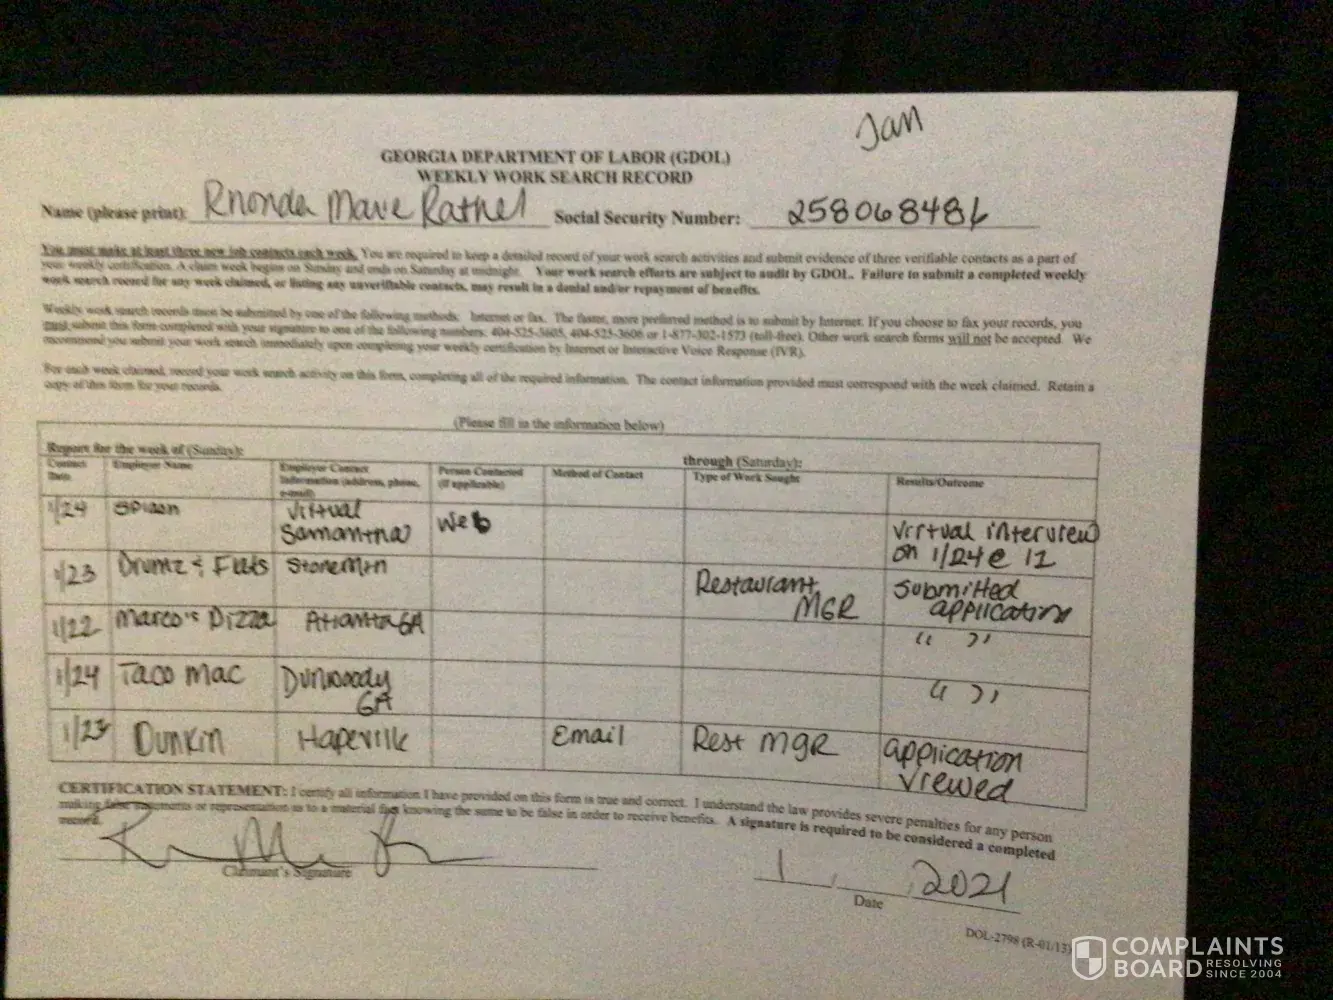 Jan
GEORGIA DEPARTMENT OF LABOR (GDOL)
WEEKLY WORK SEARCH RECORD
Name (please print): Rhonda Marie Rathel Social Security Number:
You must make at least three new job contacts each week. You are required to keep a detailed record of your work search activities and submit evidence of three verifiable contacts as a part of
your weekly certification. A claim week begins on Sunday and ends on Saturday at midnight. Your work search efforts are subject to audit by GDOL. Failure to submit a completed weekly
work search record for any week claimed, or listing any unverifiable contacts, may result in a denial and/or repayment of benefits.
Weekly work search records must be submitted by one of the following methods: Internet or fax. The faster, more preferred method is to submit by Internet. If you choose to fax your records, you
must submit this form completed with your signature to one of the following numbers: 404-525-3605, 404-525-3606 or 1-877-302-1573 (toll-free). Other work search forms will not be accepted. We
recommend you submit your work search immediately upon completing your weekly certification by Internet or Interactive Voice Response (IVR).
For each week claimed, record your work search activity on this form, completing all of the required information. The contact information provided must correspond with the week claimed. Retain a
copy of this form for your records.
(Please fill in the information below)
Report for the week of (Sunday): through (Saturday):
Contact Date Employer Name Employer Contact Information (address, phone, e-mail) Person Contacted (if applicable) Method of Contact Type of Work Sought Results/Outcome
1/24 Virtual Samantha Web Virtual interview on 1/24 @ 12
1/23 Drumz & Flats StoneMtn Restaurant MGR Submitted application
1/22 Marco's Pizza Atlanta GA " "
1/24 Taco Mac Dunwoody GA " "
1/23 Dunkin Hapeville Email Rest MGR application viewed
CERTIFICATION STATEMENT: I certify all information I have provided on this form is true and correct. I understand the law provides severe penalties for any person
making false statements or representation as to a material fact knowing the same to be false in order to receive benefits. A signature is required to be considered a completed
record.
1 2021
Claimant's Signature Date
DOL-2798 (R-01/13)
COMPLAINTS
BOARD RESOLVING
SINCE 2004